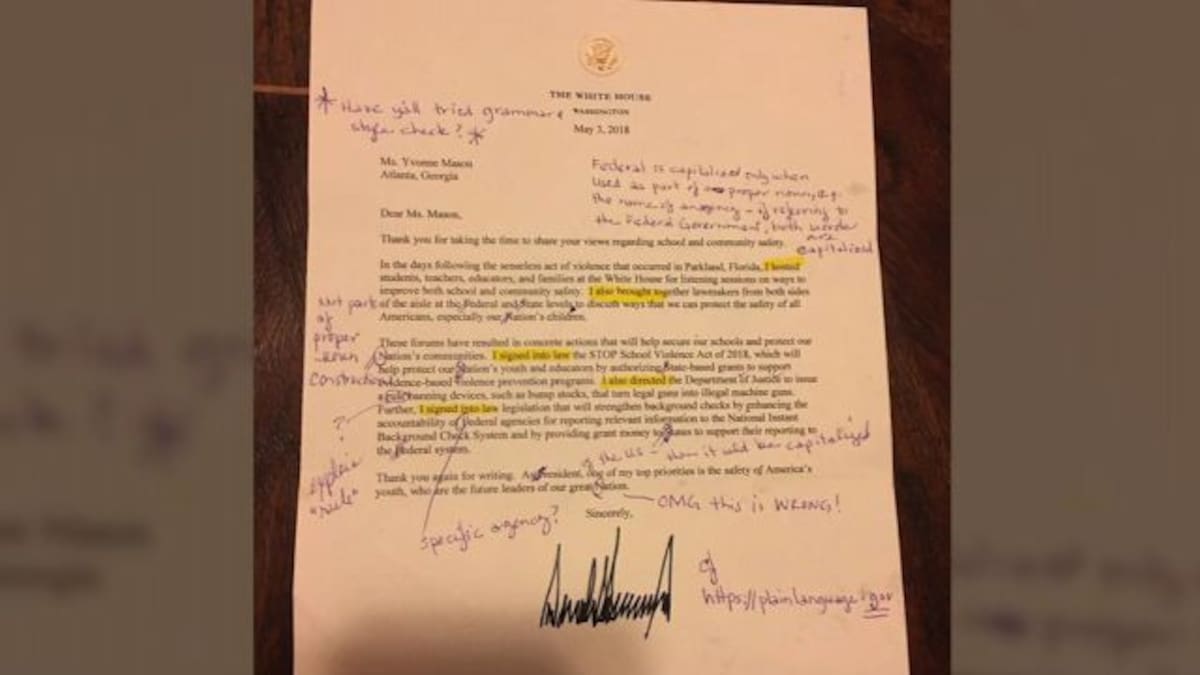 THE WHITE HOUSE
WASHINGTON
May 3, 2018
* Have y'all tried grammar &
style check? *
Ms. Yvonne Mason
Atlanta, Georgia
Federal is capitalized only when
used as part of proper noun, e.g.
the name of an agency - if referring to
the Federal Government, both words
are
capitalized
Dear Ms. Mason,
Thank you for taking the time to share your views regarding school and community safety.
In the days following the senseless act of violence that occurred in Parkland, Florida, I hosted
students, teachers, educators, and families at the White House for listening sessions on ways to
improve both school and community safety. I also brought together lawmakers from both sides
of the aisle at the Federal and State levels to discuss ways that we can protect the safety of all
Americans, especially our Nation's children.
Not part
of
proper
noun
construction
These forums have resulted in concrete actions that will help secure our schools and protect our
Nation's communities. I signed into law the STOP School Violence Act of 2018, which will
help protect our Nation's youth and educators by authorizing State-based grants to support
evidence-based violence prevention programs. I also directed the Department of Justice to issue
a rule banning devices, such as bump stocks, that turn legal guns into illegal machine guns.
Further, I signed into law legislation that will strengthen background checks by enhancing the
accountability of Federal agencies for reporting relevant information to the National Instant
Background Check System and by providing grant money to States to support their reporting to
the Federal system.
?
explain
"rule"
of the US - then it would be capitalized
Thank you again for writing. As President, one of my top priorities is the safety of America's
youth, who are the future leaders of our great Nation.
OMG this is WRONG!
specific agency?
Sincerely,
https://plainlanguage.gov